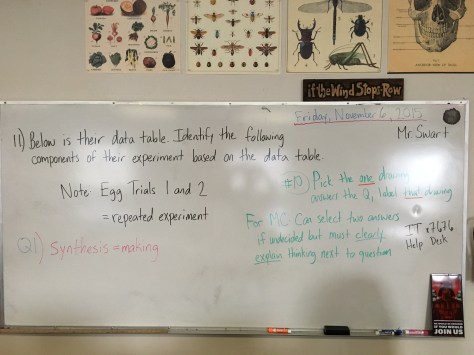 if the Wind Stops-Row
Friday, November 6, 2015
Mr. Swart
11) Below is their data table. Identify the following
components of their experiment based on the data table.
Note: Egg Trials 1 and 2
= repeated experiment
Q1) Synthesis = making
#10) Pick the one drawing
answers the Q, label that drawing
For MC: Can select two answers
if undecided but must clearly
explain thinking next to question
IT x7676
Help Desk
JOIN US